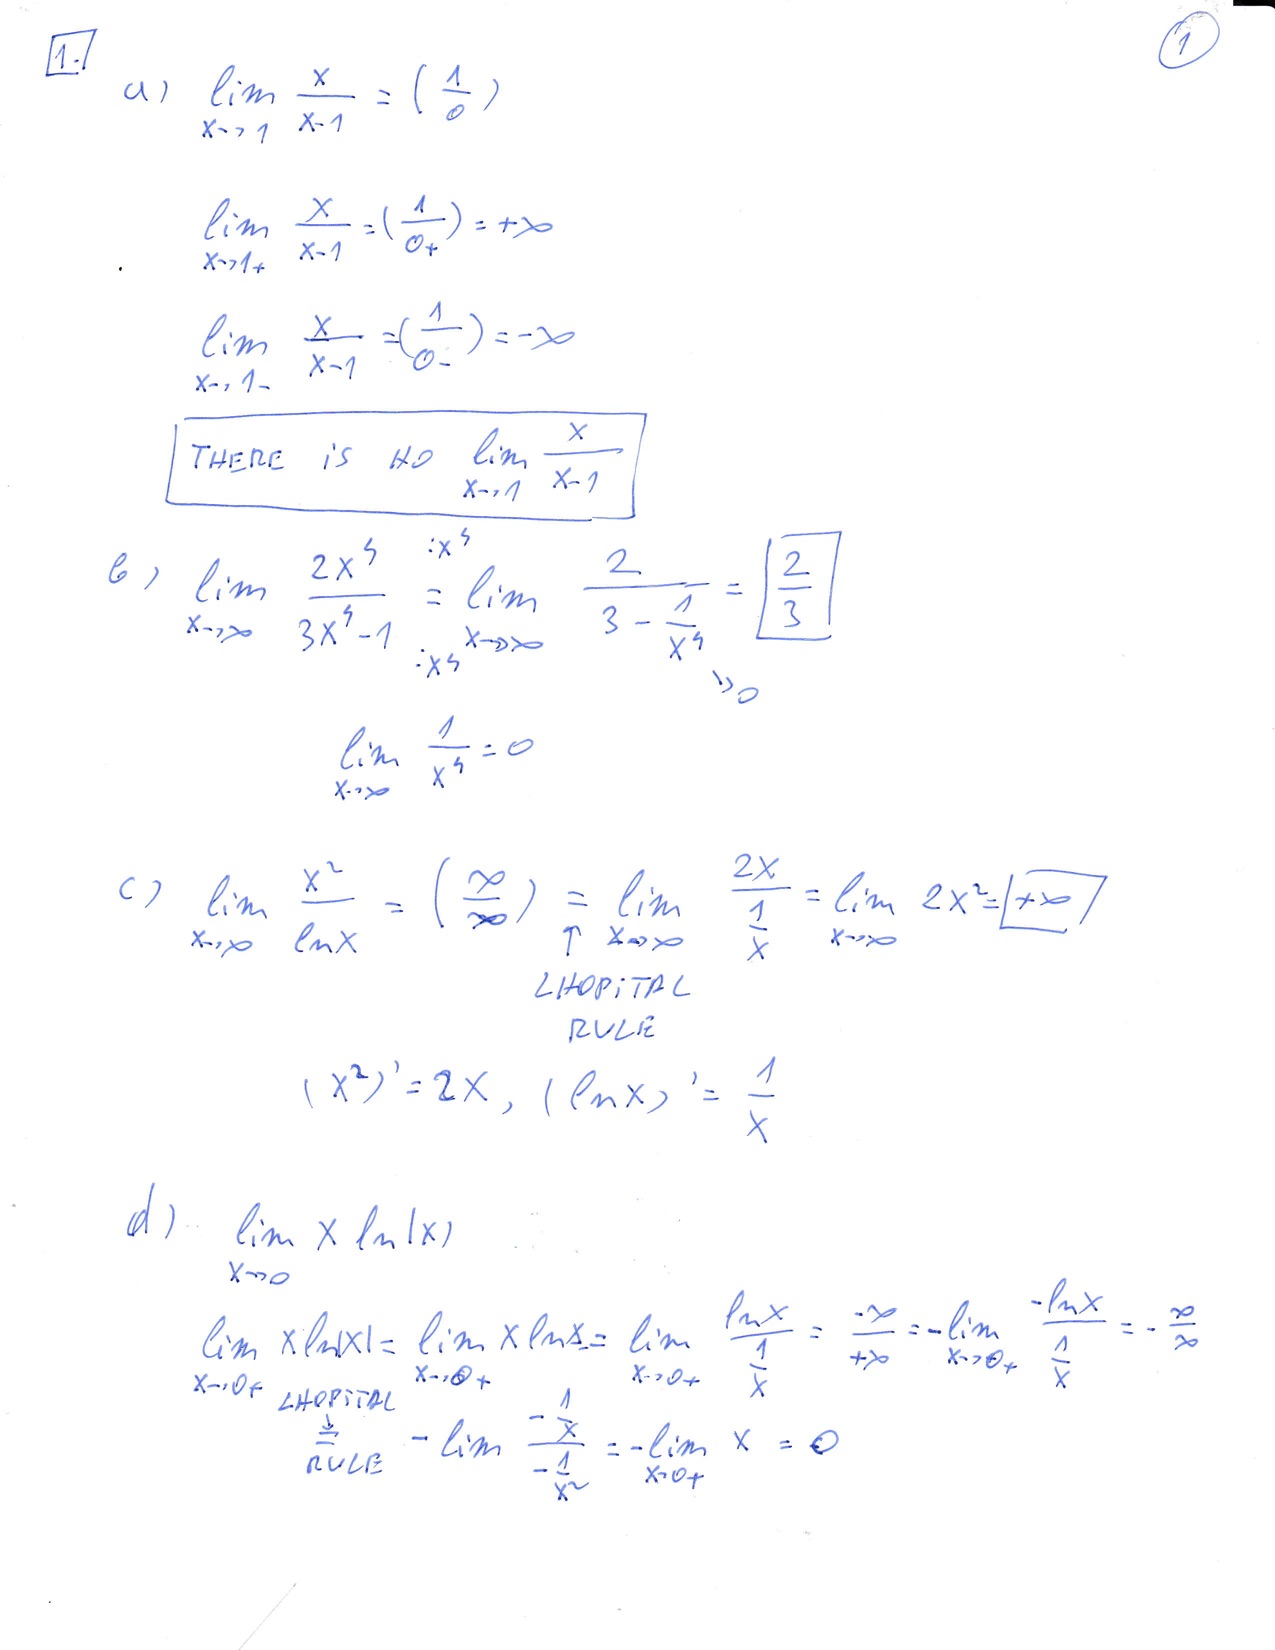 1.
1
a) lim x→1 x/(x-1) = (1/0)
lim x→1+ x/(x-1) = (1/0+) = +∞
lim x→1- x/(x-1) = (1/0-) = -∞
THERE iS NO lim x→1 x/(x-1)
b) lim x→∞ 2x⁴/(3x⁴-1) :x⁴ :x⁴ = lim x→∞ 2/(3 - 1/x⁴ →0) = 2/3
lim x→∞ 1/x⁴ = 0
c) lim x→∞ x²/lnx = (∞/∞) = lim x→∞ 2x/(1/x) = lim x→∞ 2x² = +∞
↑
LHOPiTAL
RULE
(x²)' = 2x, (lnx)' = 1/x
d) lim x→0 x ln|x|
lim x→0+ x ln|x| = lim x→0+ x lnx = lim x→0+ lnx/(1/x) = -∞/+∞ = -lim x→0+ -lnx/(1/x) = - ∞/∞
LHOPiTAL
↓
= RULE -lim (-1/x)/(-1/x²) = -lim x→0+ x = 0